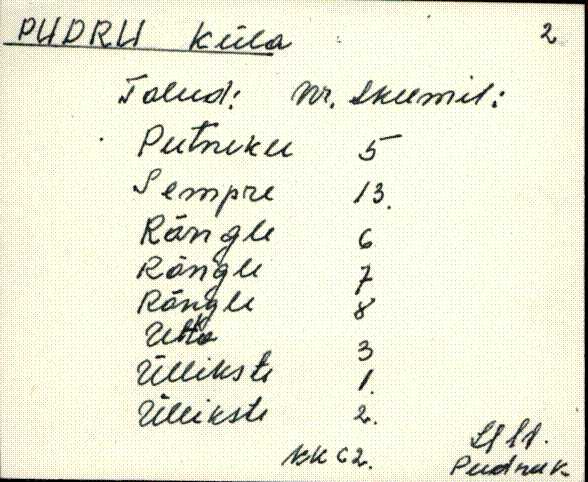 PUDRU küla 2
Talud: Nr. skeemil:
Putniku 5
Sempre 13.
Rängle 6
Rängle 7
Rängle 8
3
Üllikste 1.
Üllikste 2.
KK 62.